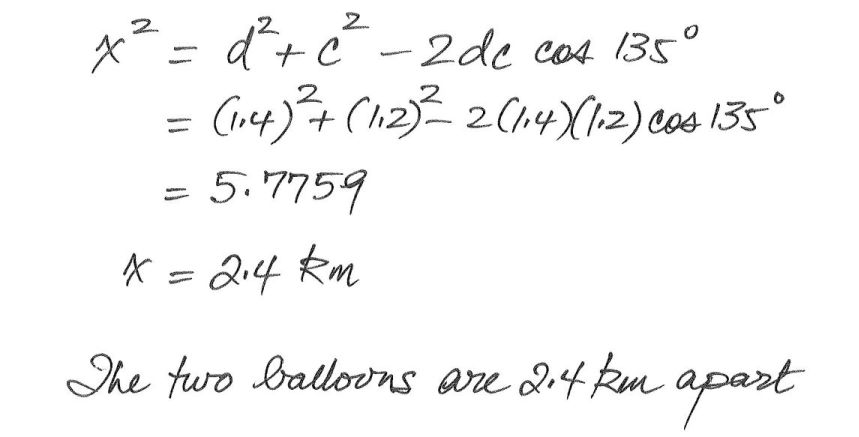 x² = d² + c² - 2dc cos 135°
= (1.4)² + (1.2)² - 2(1.4)(1.2) cos 135°
= 5.7759
x = 2.4 km
The two balloons are 2.4 km apart